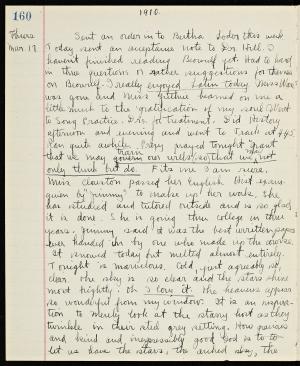 160
1910.
Thurs
Mar. 17
Sent an order in to Bertha Lodes this week
Today sent an acceptance note to Dr. Will. I
haven't finished reading Beowulf yet. Had to hand
in three questions or rather suggestions for themes
on Beowulf. I really enjoyed Latin today. Miss
was gone and Miss Ritchie heaved on me a
little much to the gratification of my soul. Went
to Song Practice. Treatment. Did History
afternoon and evening and went to Track at 4:45
Ran quite awhile. Perry prayed tonight "Grant
that we may train govern our wills so that we shall not
only think but do." Fits me I am sure.
Miss Clawton passed her English Hist exam
given by "Jimmy" to make up her work. She
has studied and tutored outside and is so glad
it is done. She is going thru college in three
years. Jimmy said it was the best written paper
ever handed him by one who made up the course.
It snowed today but melted almost entirely.
Tonight is marvelous. Cold, just agreeably so,
clear. The sky is so clear and the stars shine
most brightly. Oh I love it. The heavens appear
so wonderful from my window. It is an inspira-
tion to merely look at the starry host as they
twinkle in their steel grey setting. How gracious
and kind and inexpressibly good God is to
let us have the stars, the arched sky, the